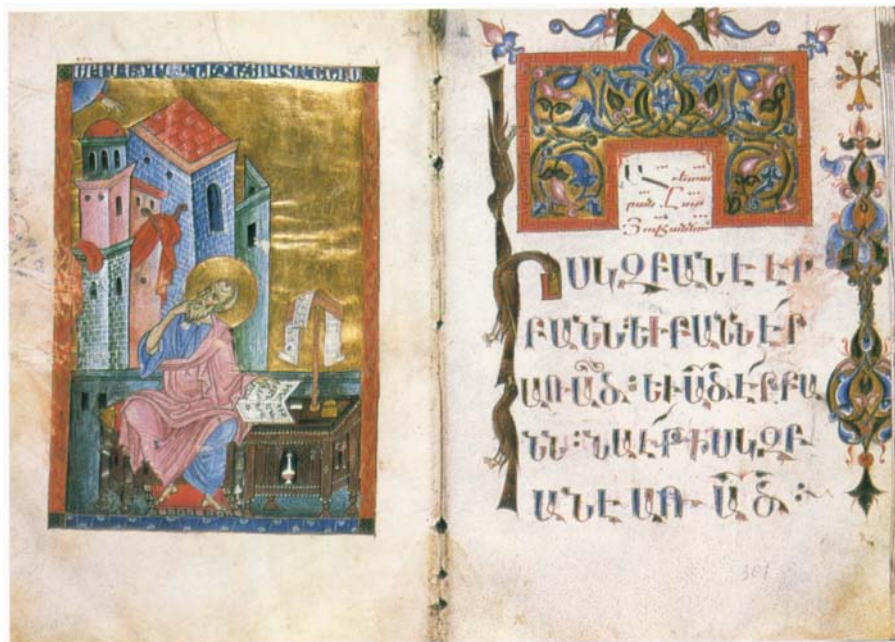 Աւետա
րան Ըստ
ԻՍԿԶԲԱՆԷ ԷՐ
ԲԱՆՆ։ԵՒ ԲԱՆՆ ԷՐ
ԱՌ ԱԾ։ ԵՒ ԱԾ ԷՐ ԲԱ
ՆՆ։ ՆԱ ԷՐ ԻՍԿԶԲ
ԱՆԷ ԱՌ ԱԾ։
301